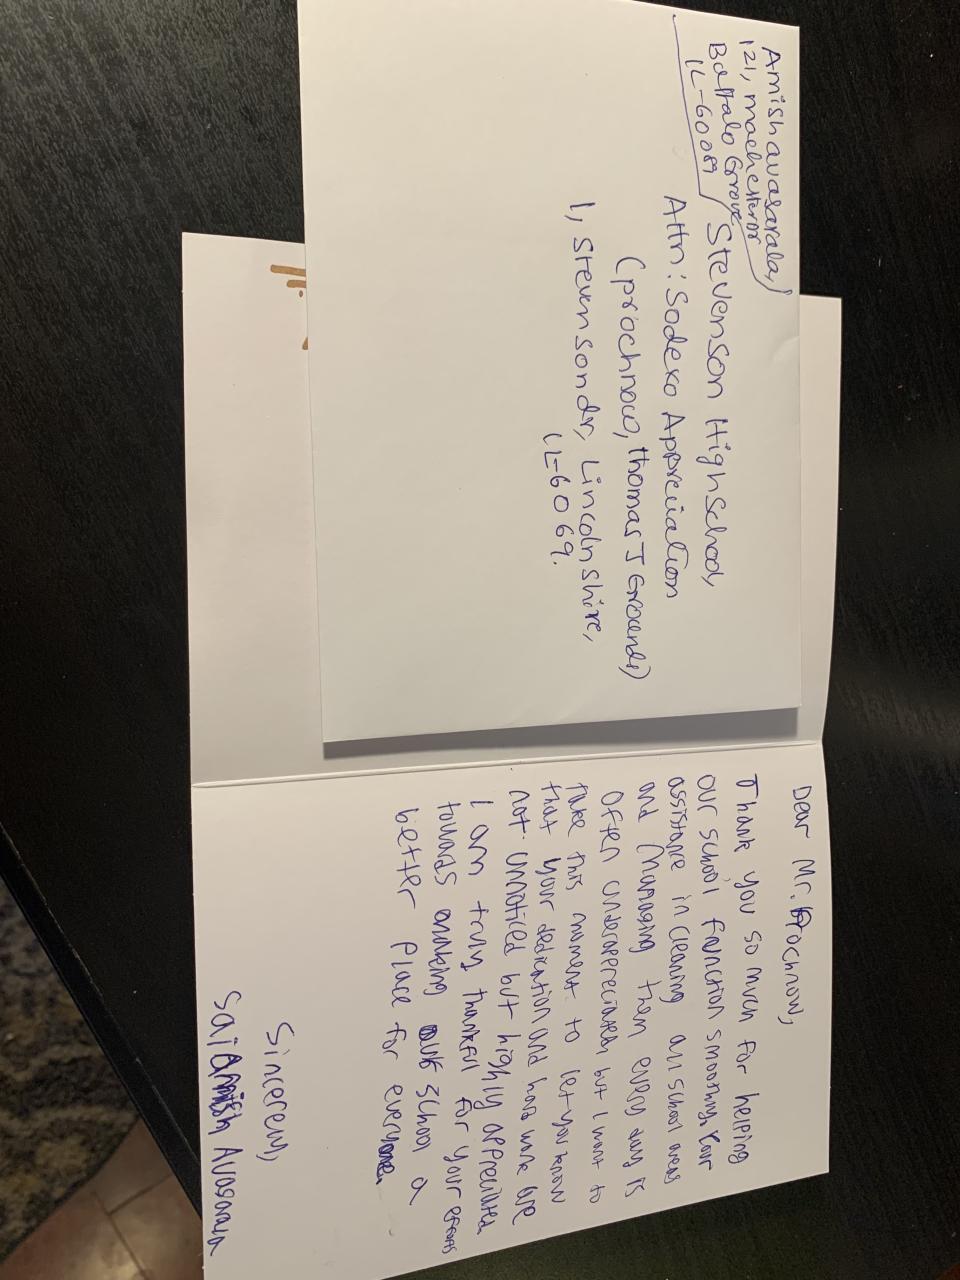 Amish avasarala,
121, manchester Dr
Baffalo Grove
IL-60089
Stevenson High School,
Attn: Sodexo Appreciation
(prochnow, thomas J Grounds)
1, Stevenson dr, Lincolnshire,
IL-6069.
Dear Mr. Prochnow,
Thank you so much for helping
our school function smoothly. Your
assistance in cleaning all school areas
and managing them every day is
often underappreciated, but I want to
take this moment to let you know
that your dedication and hard work are
not unnoticed but highly appreciated.
I am truly thankful for your efforts
towards making our school a
better place for everyone.
Sincerely,
Sai Amish Avasarala